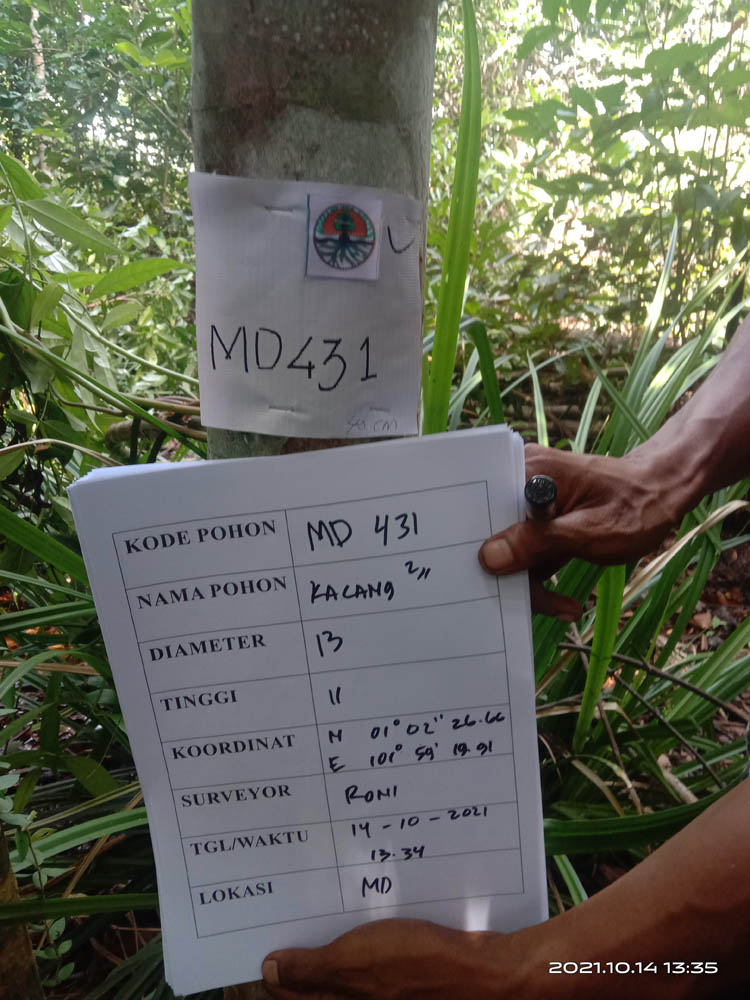 MD431
KODE POHON MD 431
NAMA POHON KACANG 2//
DIAMETER 13
TINGGI 11
KOORDINAT N 01° 02" 26.66
E 101° 59' 19.91
SURVEYOR RONI
TGL/WAKTU 14-10-2021
13.34
LOKASI MD
2021.10.14 13:35